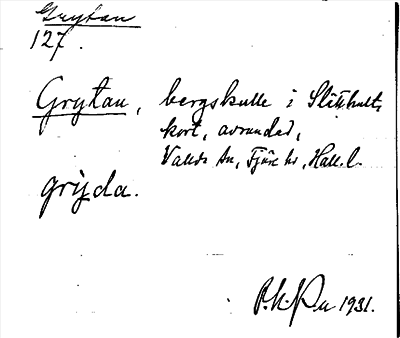 Grytan
127.
Grytan, bergskulle i Slätthult,
kort, avrundad,
Vallda sn, Fjäre hd, Hall. l.
grŷda.
1931.